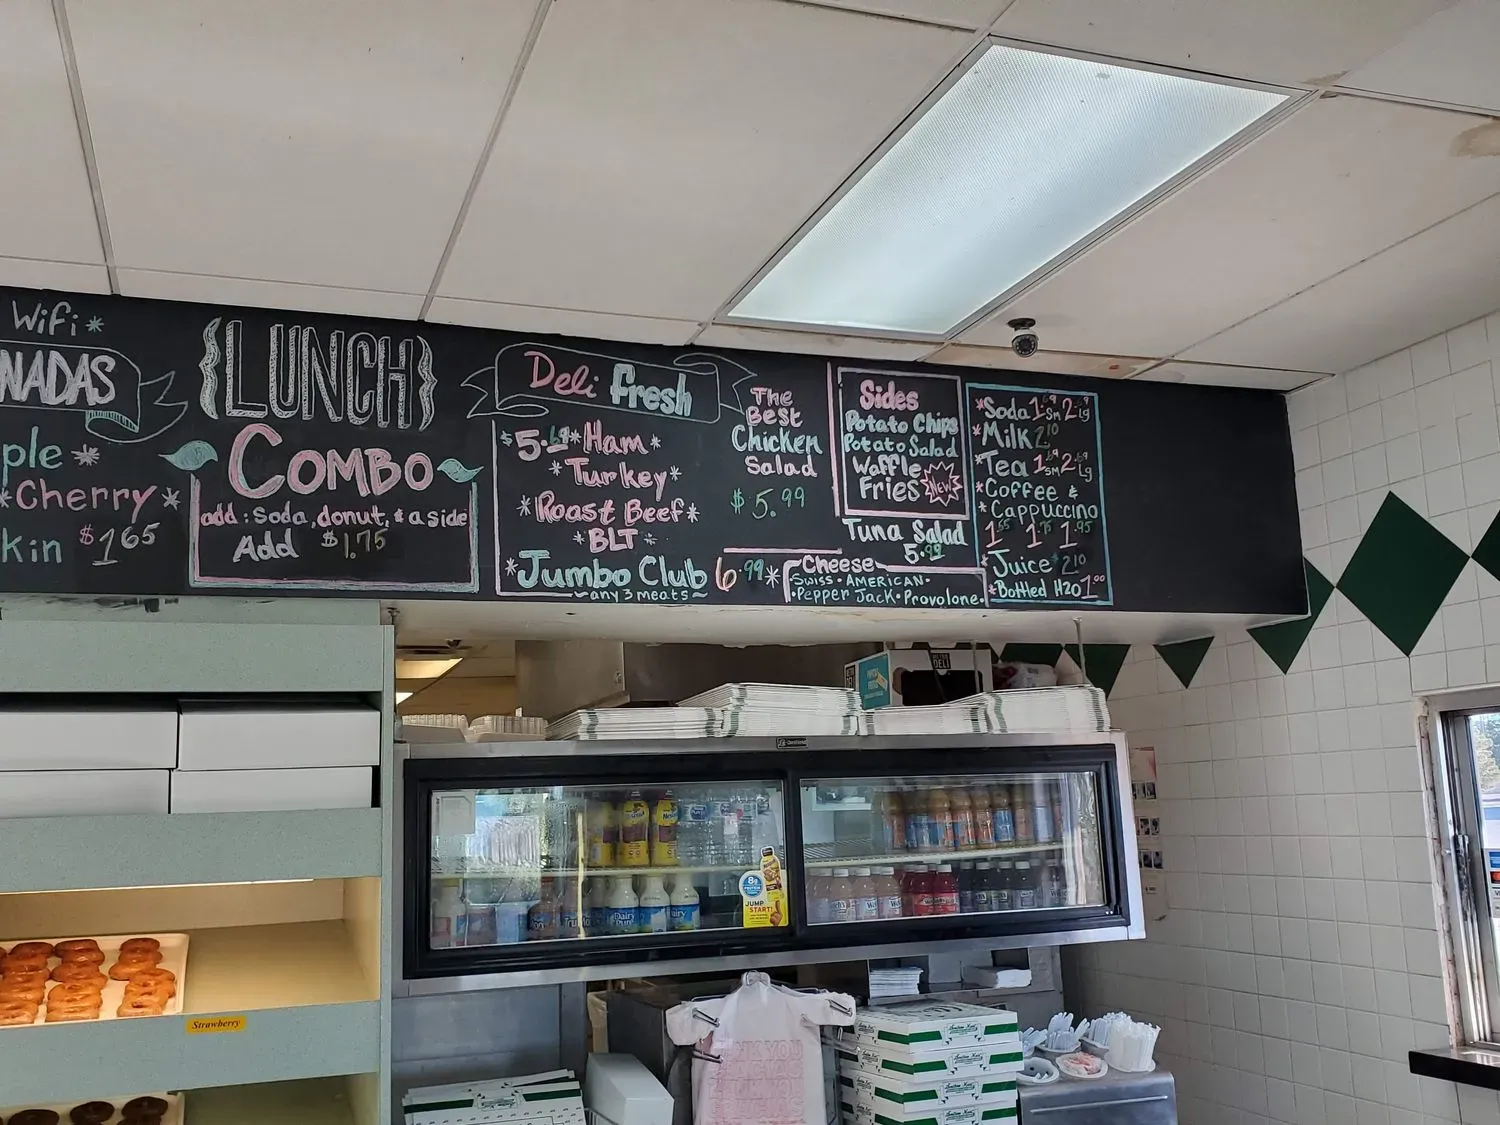 Wifi
NADAS
ple
Cherry
kin $1.65
{LUNCH}
COMBO
add: Soda, donut, & a side
Add $1.75
Deli fresh
$5.69 Ham
Turkey
Roast Beef
BLT
Jumbo Club 6.99
any 3 meats
The
Best
Chicken
Salad
$5.99
Sides
Potato Chips
Potato Salad
Waffle
Fries NEW
Tuna Salad
5.99
Cheese
Swiss • American •
Pepper Jack • Provolone
Soda 1.69 Sm 2.69 Lg
Milk 2.10
Tea 1.69 Sm 2.69 Lg
Coffee &
Cappuccino
1.55 1.75 1.95
Juice 2.10
Bottled H2O 1.00
DELI
Dairy
Pure
Dairy
JUMP
START!
Strawberry